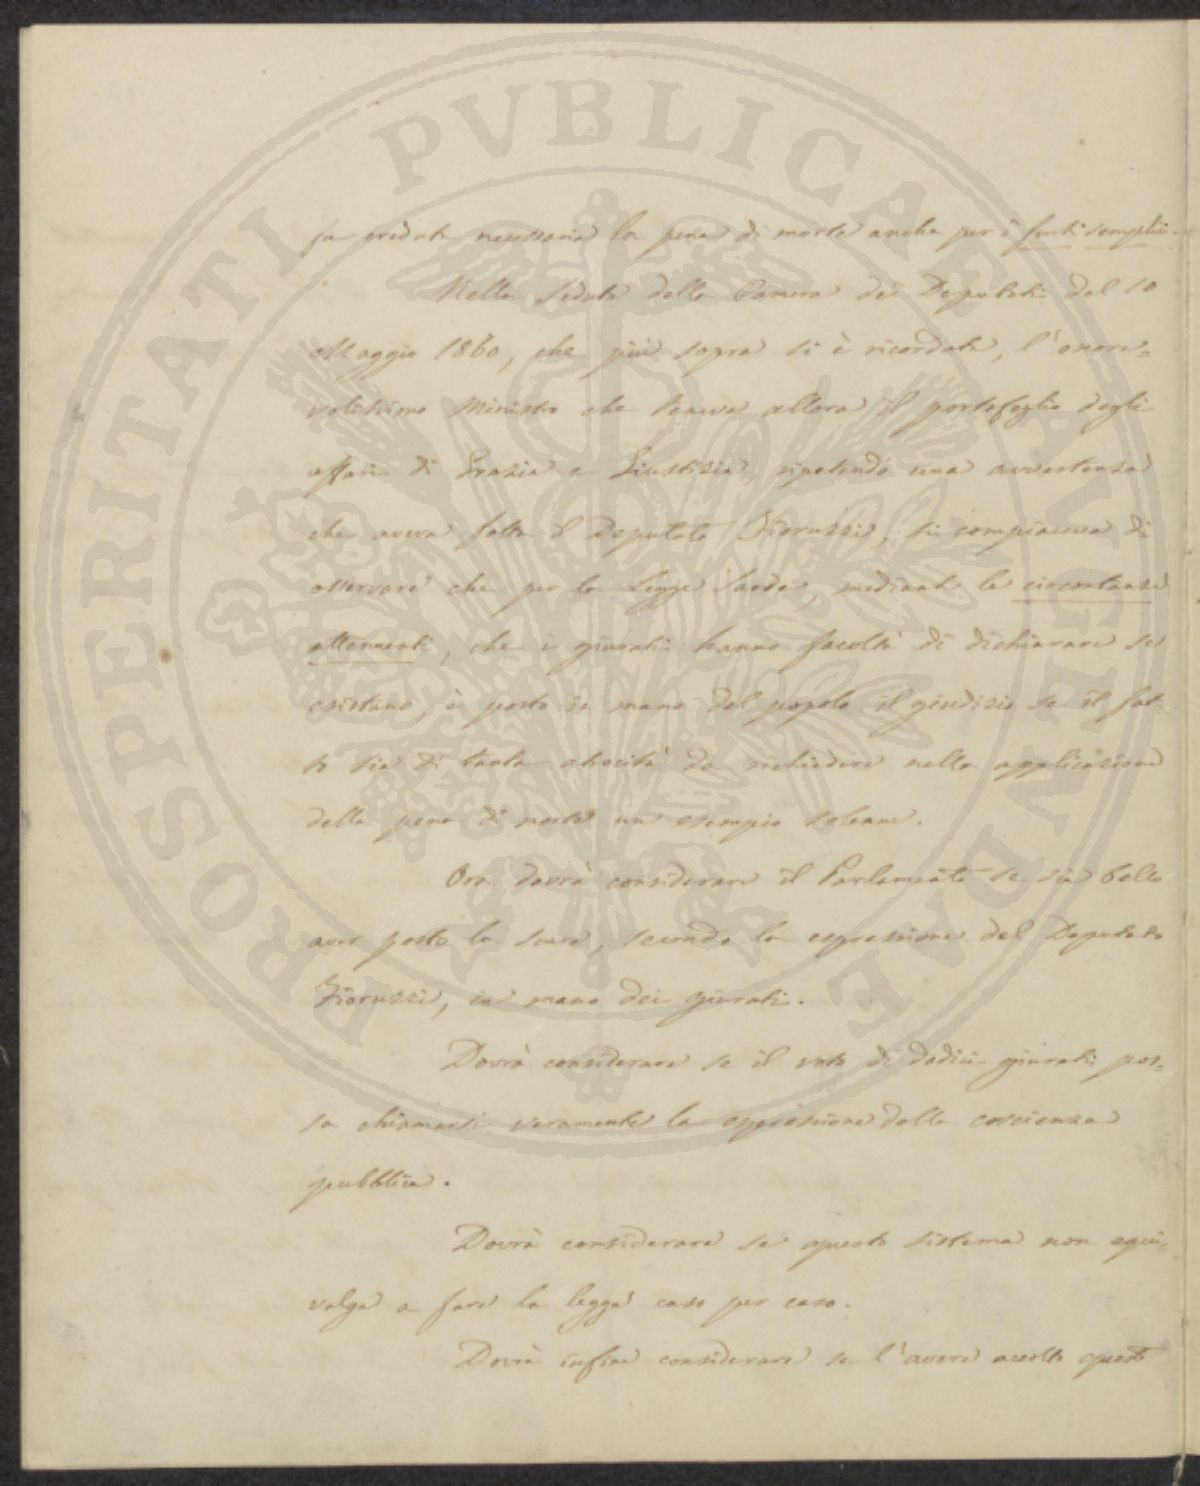 PROSPERITATI PVBLICAE AVGENDAE
fu creduta necessaria la pena di morte anche per i furti semplici.
Nella seduta della Camera dei Deputati del 10
Maggio 1860, che più sopra si è ricordata, l'onore=
volissimo Ministro che teneva allora il portafoglio degli
affari di Grazia e Giustizia, ripetendo una avvertenza
che aveva fatta il Deputato Fioruzzi, si compiaceva di
osservare che per la Legge Sarda, mediante le circostanze
attenuanti, che i giurati hanno facoltà di dichiarare se
esistano, è posto in mano del popolo il giudizio se il fat=
to sia di tanta atrocità da richiedere nella applicazione
della pena di morte un esempio solenne.
Ora dovrà considerare il Parlamento se sia bello
aver posto la scure, secondo la espressione del Deputato
Fioruzzi, in mano dei giurati.
Dovrà considerare se il voto di dodici giurati pos=
sa chiamarsi veramente la espressione della coscienza
pubblica.
Dovrà considerare se questo sistema non equi=
valga a fare la legge caso per caso.
Dovrà infine considerare se l'avere accolto questo